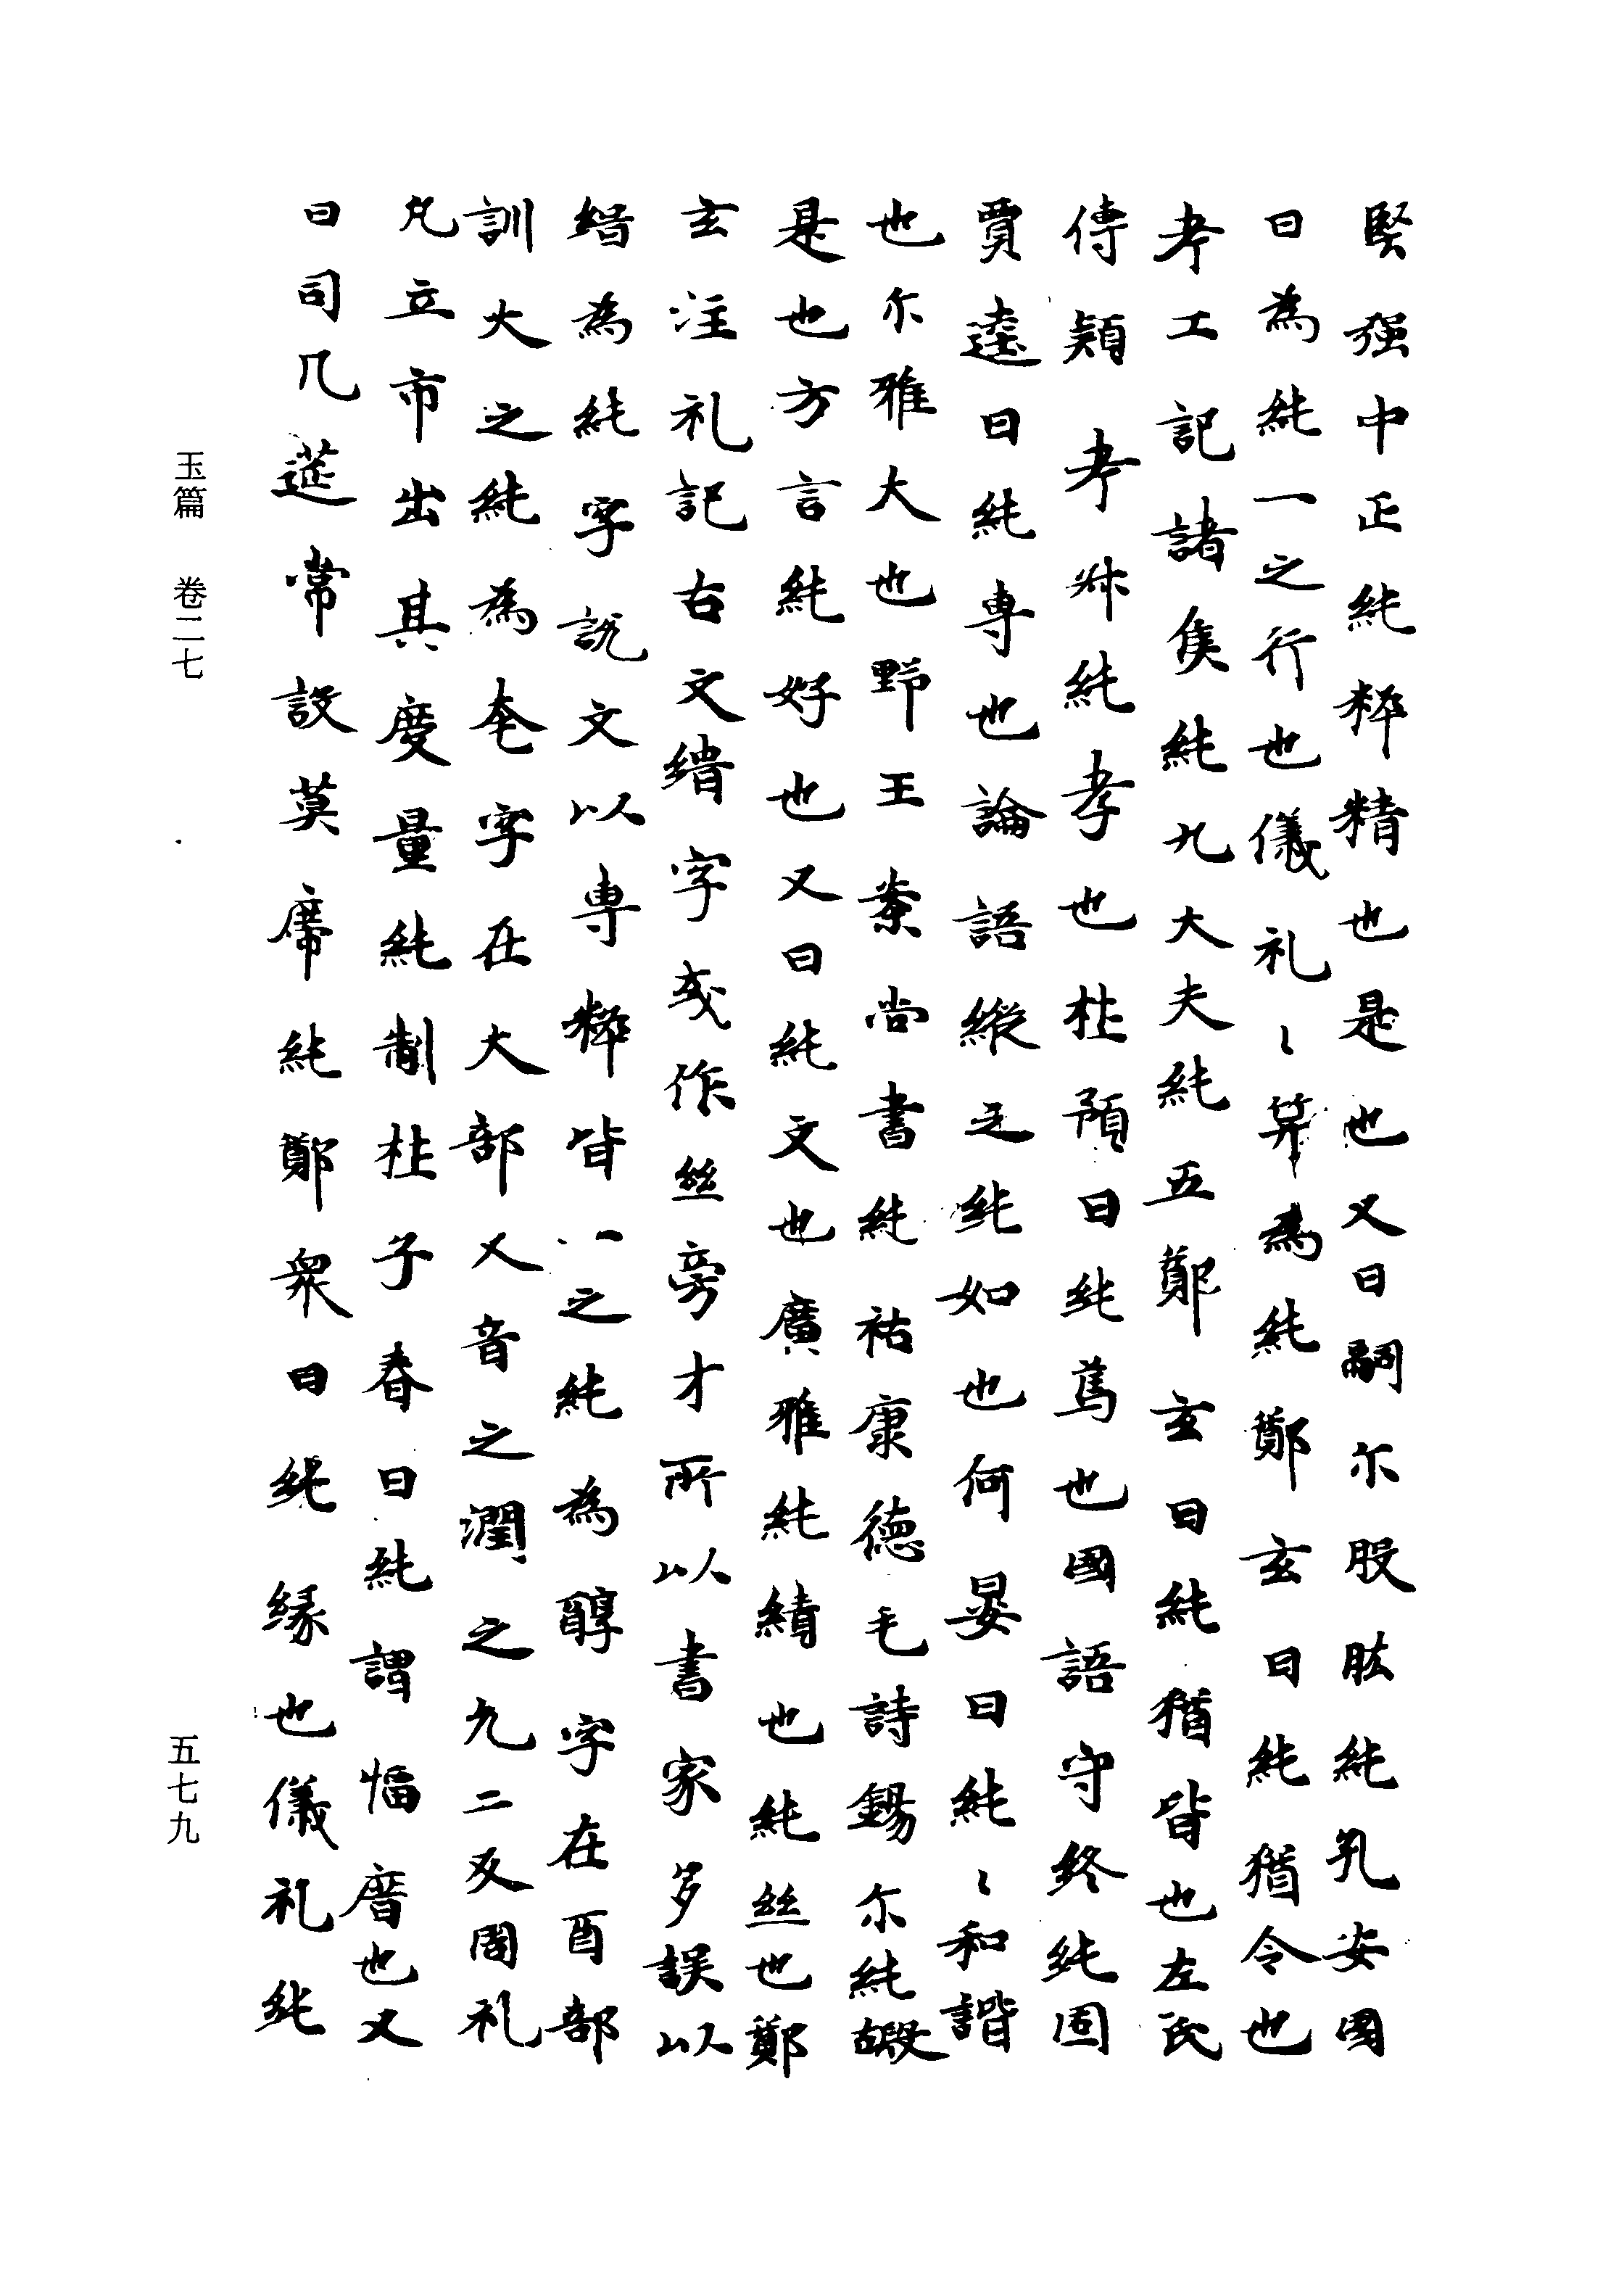 堅强中正純粹精也是也又曰嗣尒股肱純孔安國
曰為純一之行也儀礼〻筭為純鄭玄曰純猶令也
考工記諸侯純九大夫純五鄭玄曰純猶皆也左氏
傳穎考叔純孝也杜預曰純篤也國語守終純固
賈逵曰純專也論語縱之純如也何晏曰純〻和諧
也尒雅大也野王案尚書純祐康德毛詩錫尒純嘏
是也方言純好也又曰純文也廣雅純績也純絲也鄭
玄注礼記古文緇字或作絲旁才所以書家多誤以
緇為純字說文以專粹皆一之純為醇字在酉部
訓大之純為奄字在大部又音之潤之允二反周礼
凡立市出其度量純制杜子春曰純謂幅廣也又
曰司几莚常設莫席純鄭衆曰純緣也儀礼純
玉篇 卷二七
五七九